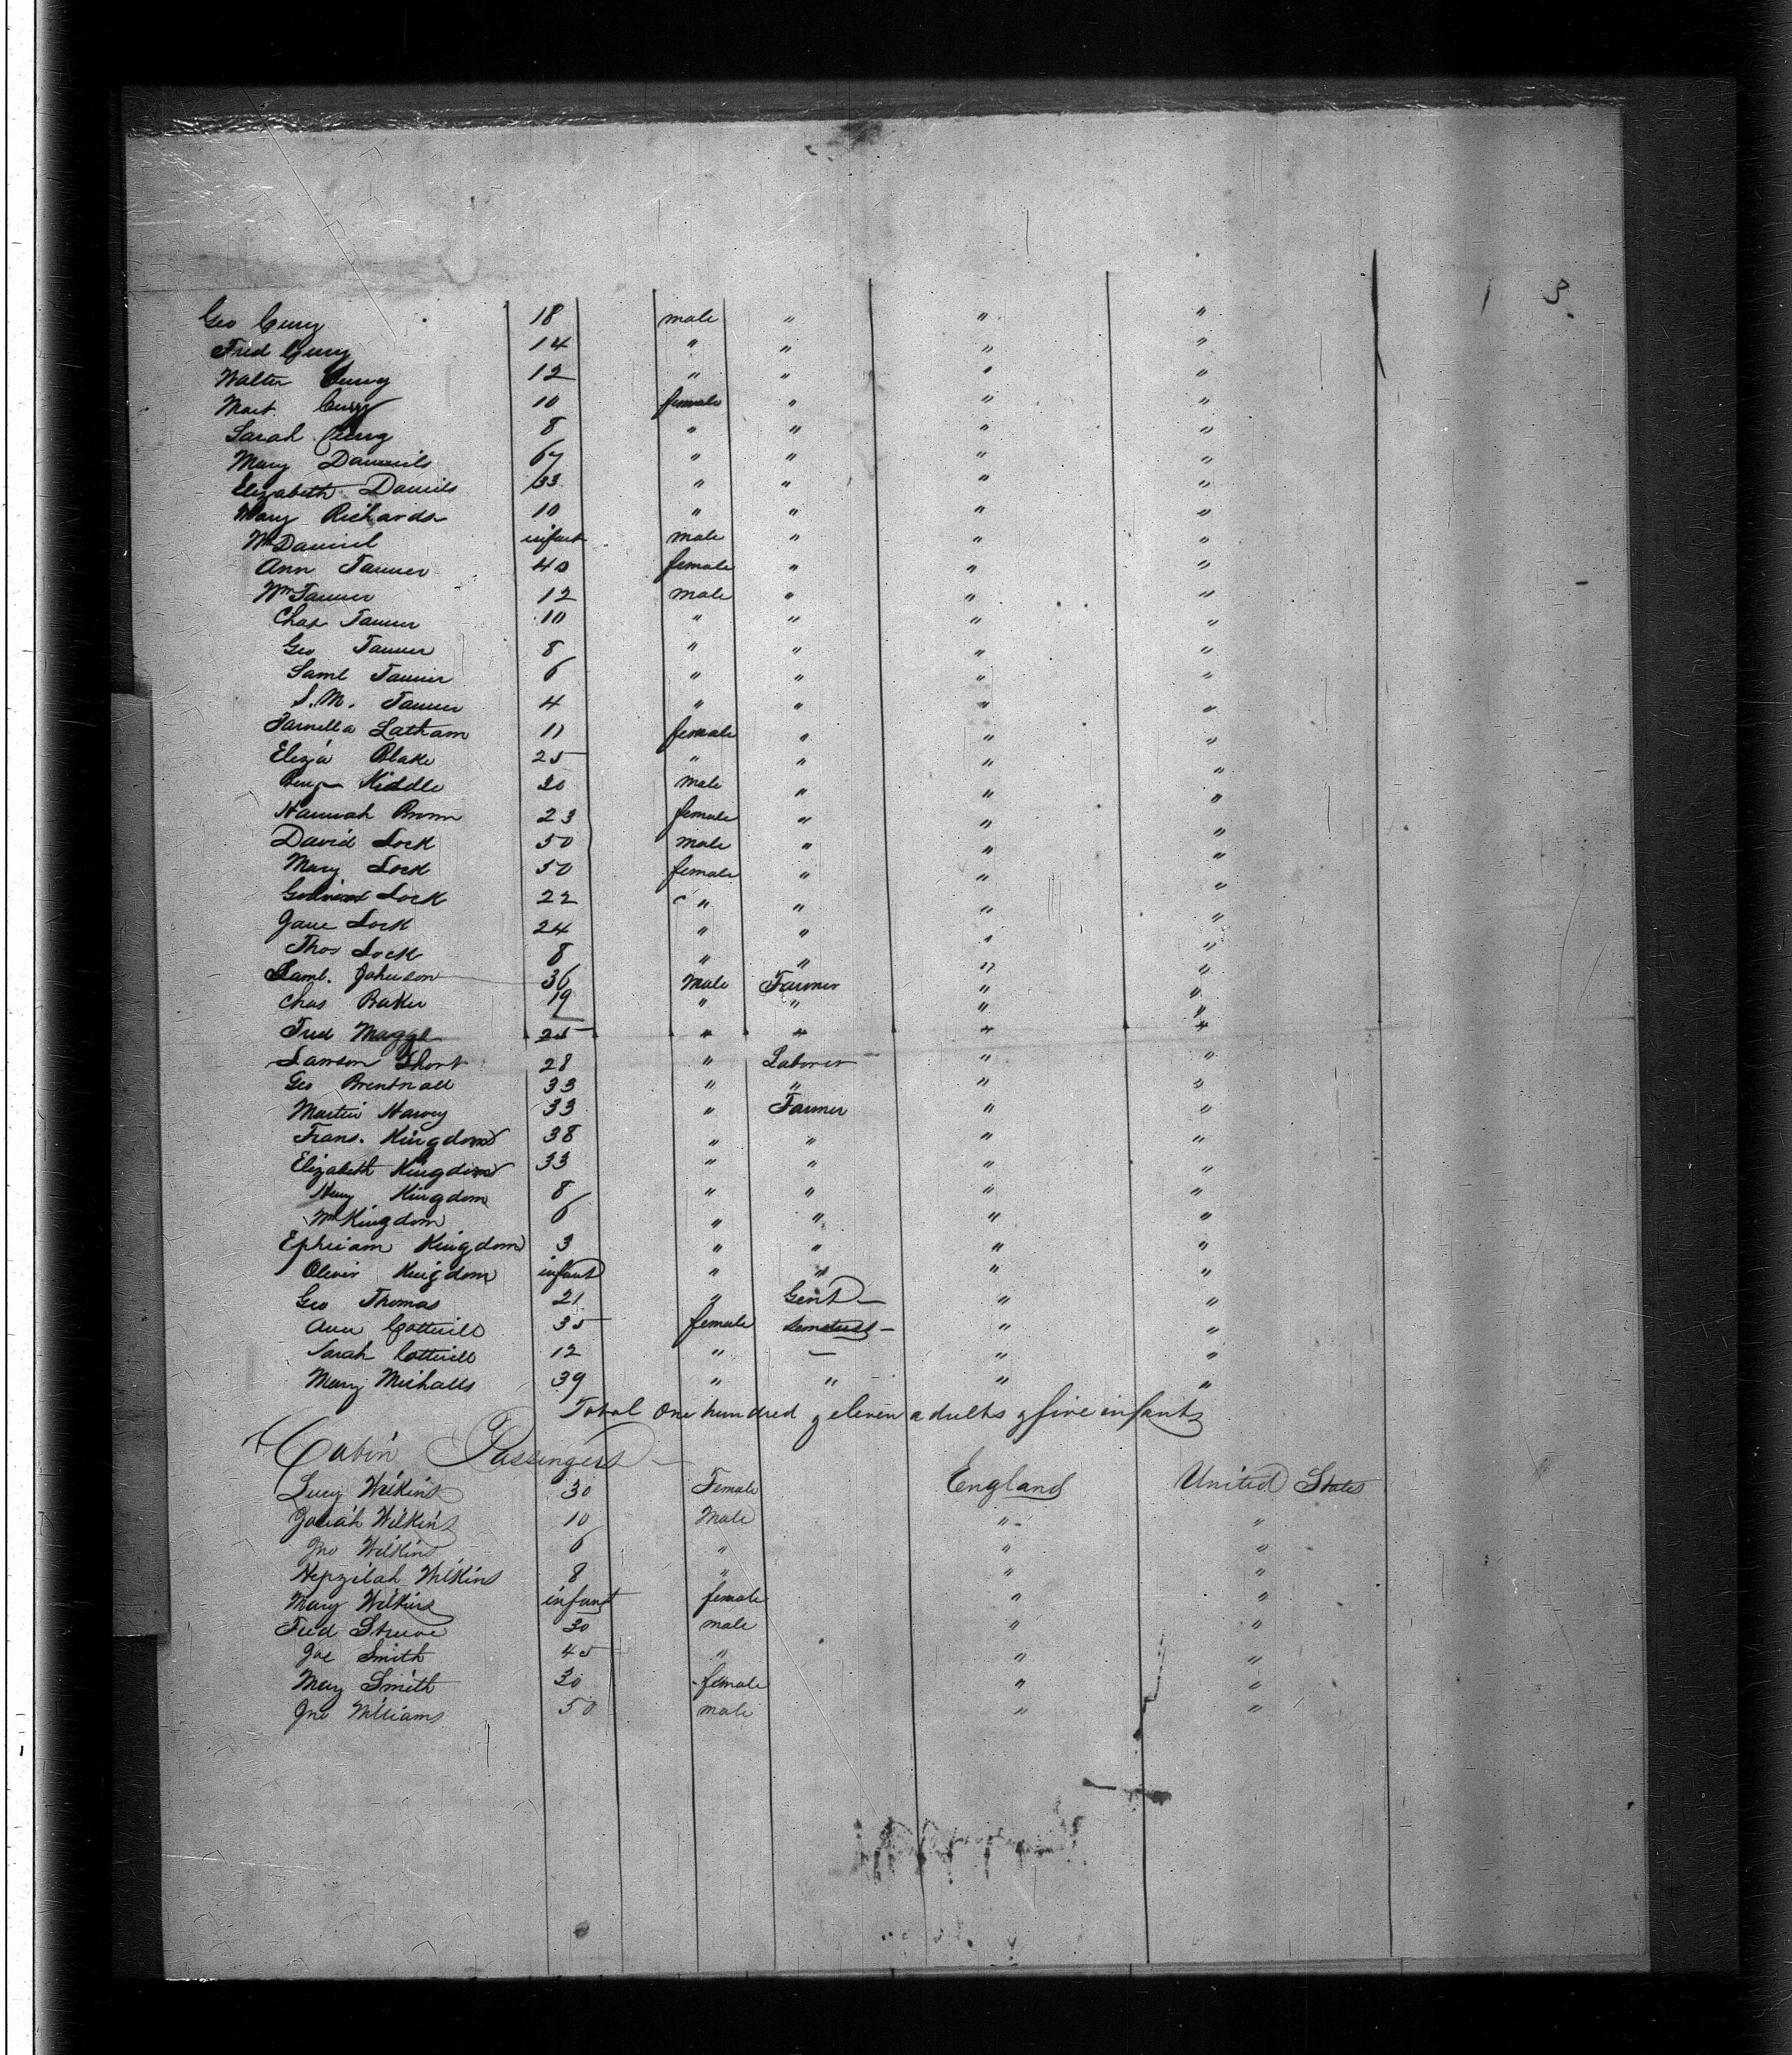 3
Geo Curry 18 male " " "
Fred Curry 14 " " " "
Walter Curry 12 " " " "
Mart. Curry 10 female " " "
Sarah Curry 8 " " " "
Mary Dauniels 67 " " " "
Elizabeth Daniels 33 " " " "
Mary Richards 10 " " " "
Wm Daniel infant male " " "
Ann Tanner 40 female " " "
Wm Tanner 12 male " " "
Chas Tanner 10 " " " "
Geo Tanner 8 " " " "
Saml Tanner 6 " " " "
S. M. Tanner 4 " " " "
Latham 11 female " " "
Eliza Blake 25 " " " "
Benj Kiddle 20 male " " "
Hannah Brown 23 female " " "
David Lock 50 male " " "
Mary Lock 50 female " " "
Lock 22 " " " "
Jane Lock 24 " " " "
Thos Lock 8 " " " "
Saml. Johnson 36 Male Farmer " "
Chas Baker 19 " " " "
Fred Maggs 25 " " " "
Lawson Short 28 " Laborer " "
Geo Brentnall 33 " " " "
Martin Harvey 33 " Farmer " "
Frans. Kingdom 38 " " " "
Elizabeth Kingdom 33 " " " "
Henry Kingdom 8 " " " "
Wm Kingdom 6 " " " "
Ephriam Kingdom 3 " " " "
Oliver Kingdom infant " " " "
Geo Thomas 21 " Gent — " "
Ann Cotterill 35 female — " "
Sarah Cotterill 12 " — " "
Mary Michalls 39 " " " "
Total one hundred & eleven adults & five infants
Cabin Passengers —
Lucy Wilkins 30 Female England United States
Josiah Wilkins 10 Male " "
Jno Wilkins 6 " " "
Hepzibah Wilkins 8 " " "
Mary Wilkins infant female " "
Fred Struve 30 male " "
Joe Smith 45 " " "
Mary Smith 30 female " "
Jno Williams 50 male " "